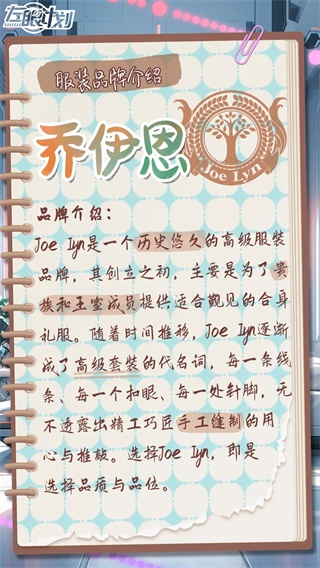 左眼计划
服装品牌介绍
乔伊恩
Joe Lyn
品牌介绍：
Joe lyn是一个历史悠久的高级服装
品牌，其创立之初，主要是为了贵
族和王室成员提供适合觐见的合身
礼服。随着时间推移，Joe lyn逐渐
成了高级套装的代名词，每一条线
条、每一个扣眼、每一处针脚，无
不透露出精工巧匠手工缝制的用
心与推敲。选择Joe lyn，即是
选择品质与品位。